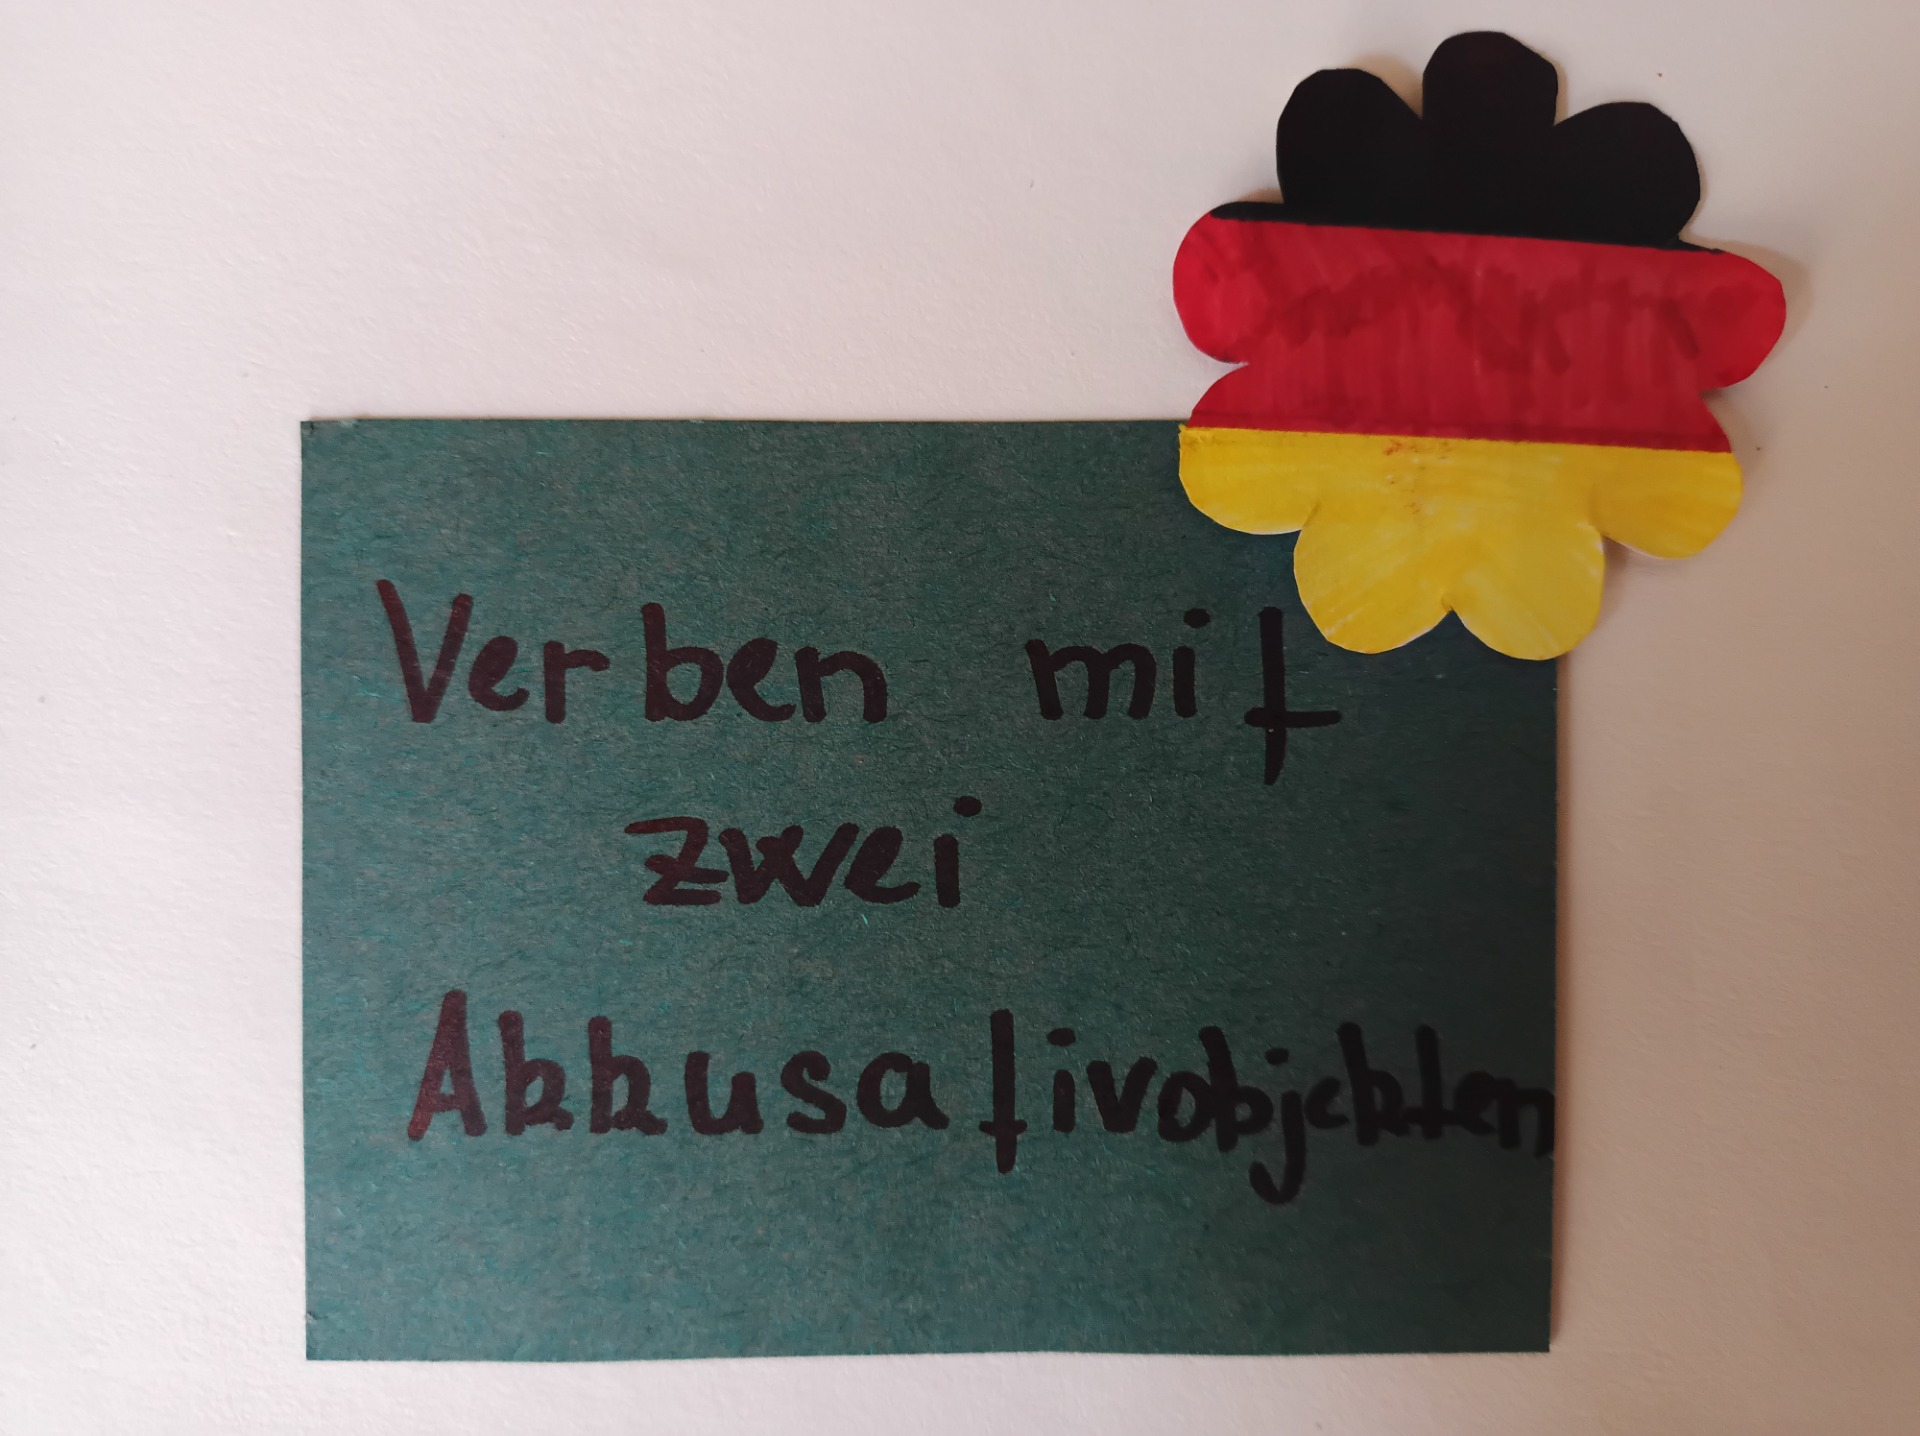 Verben mit
zwei
Akkusativobjekten